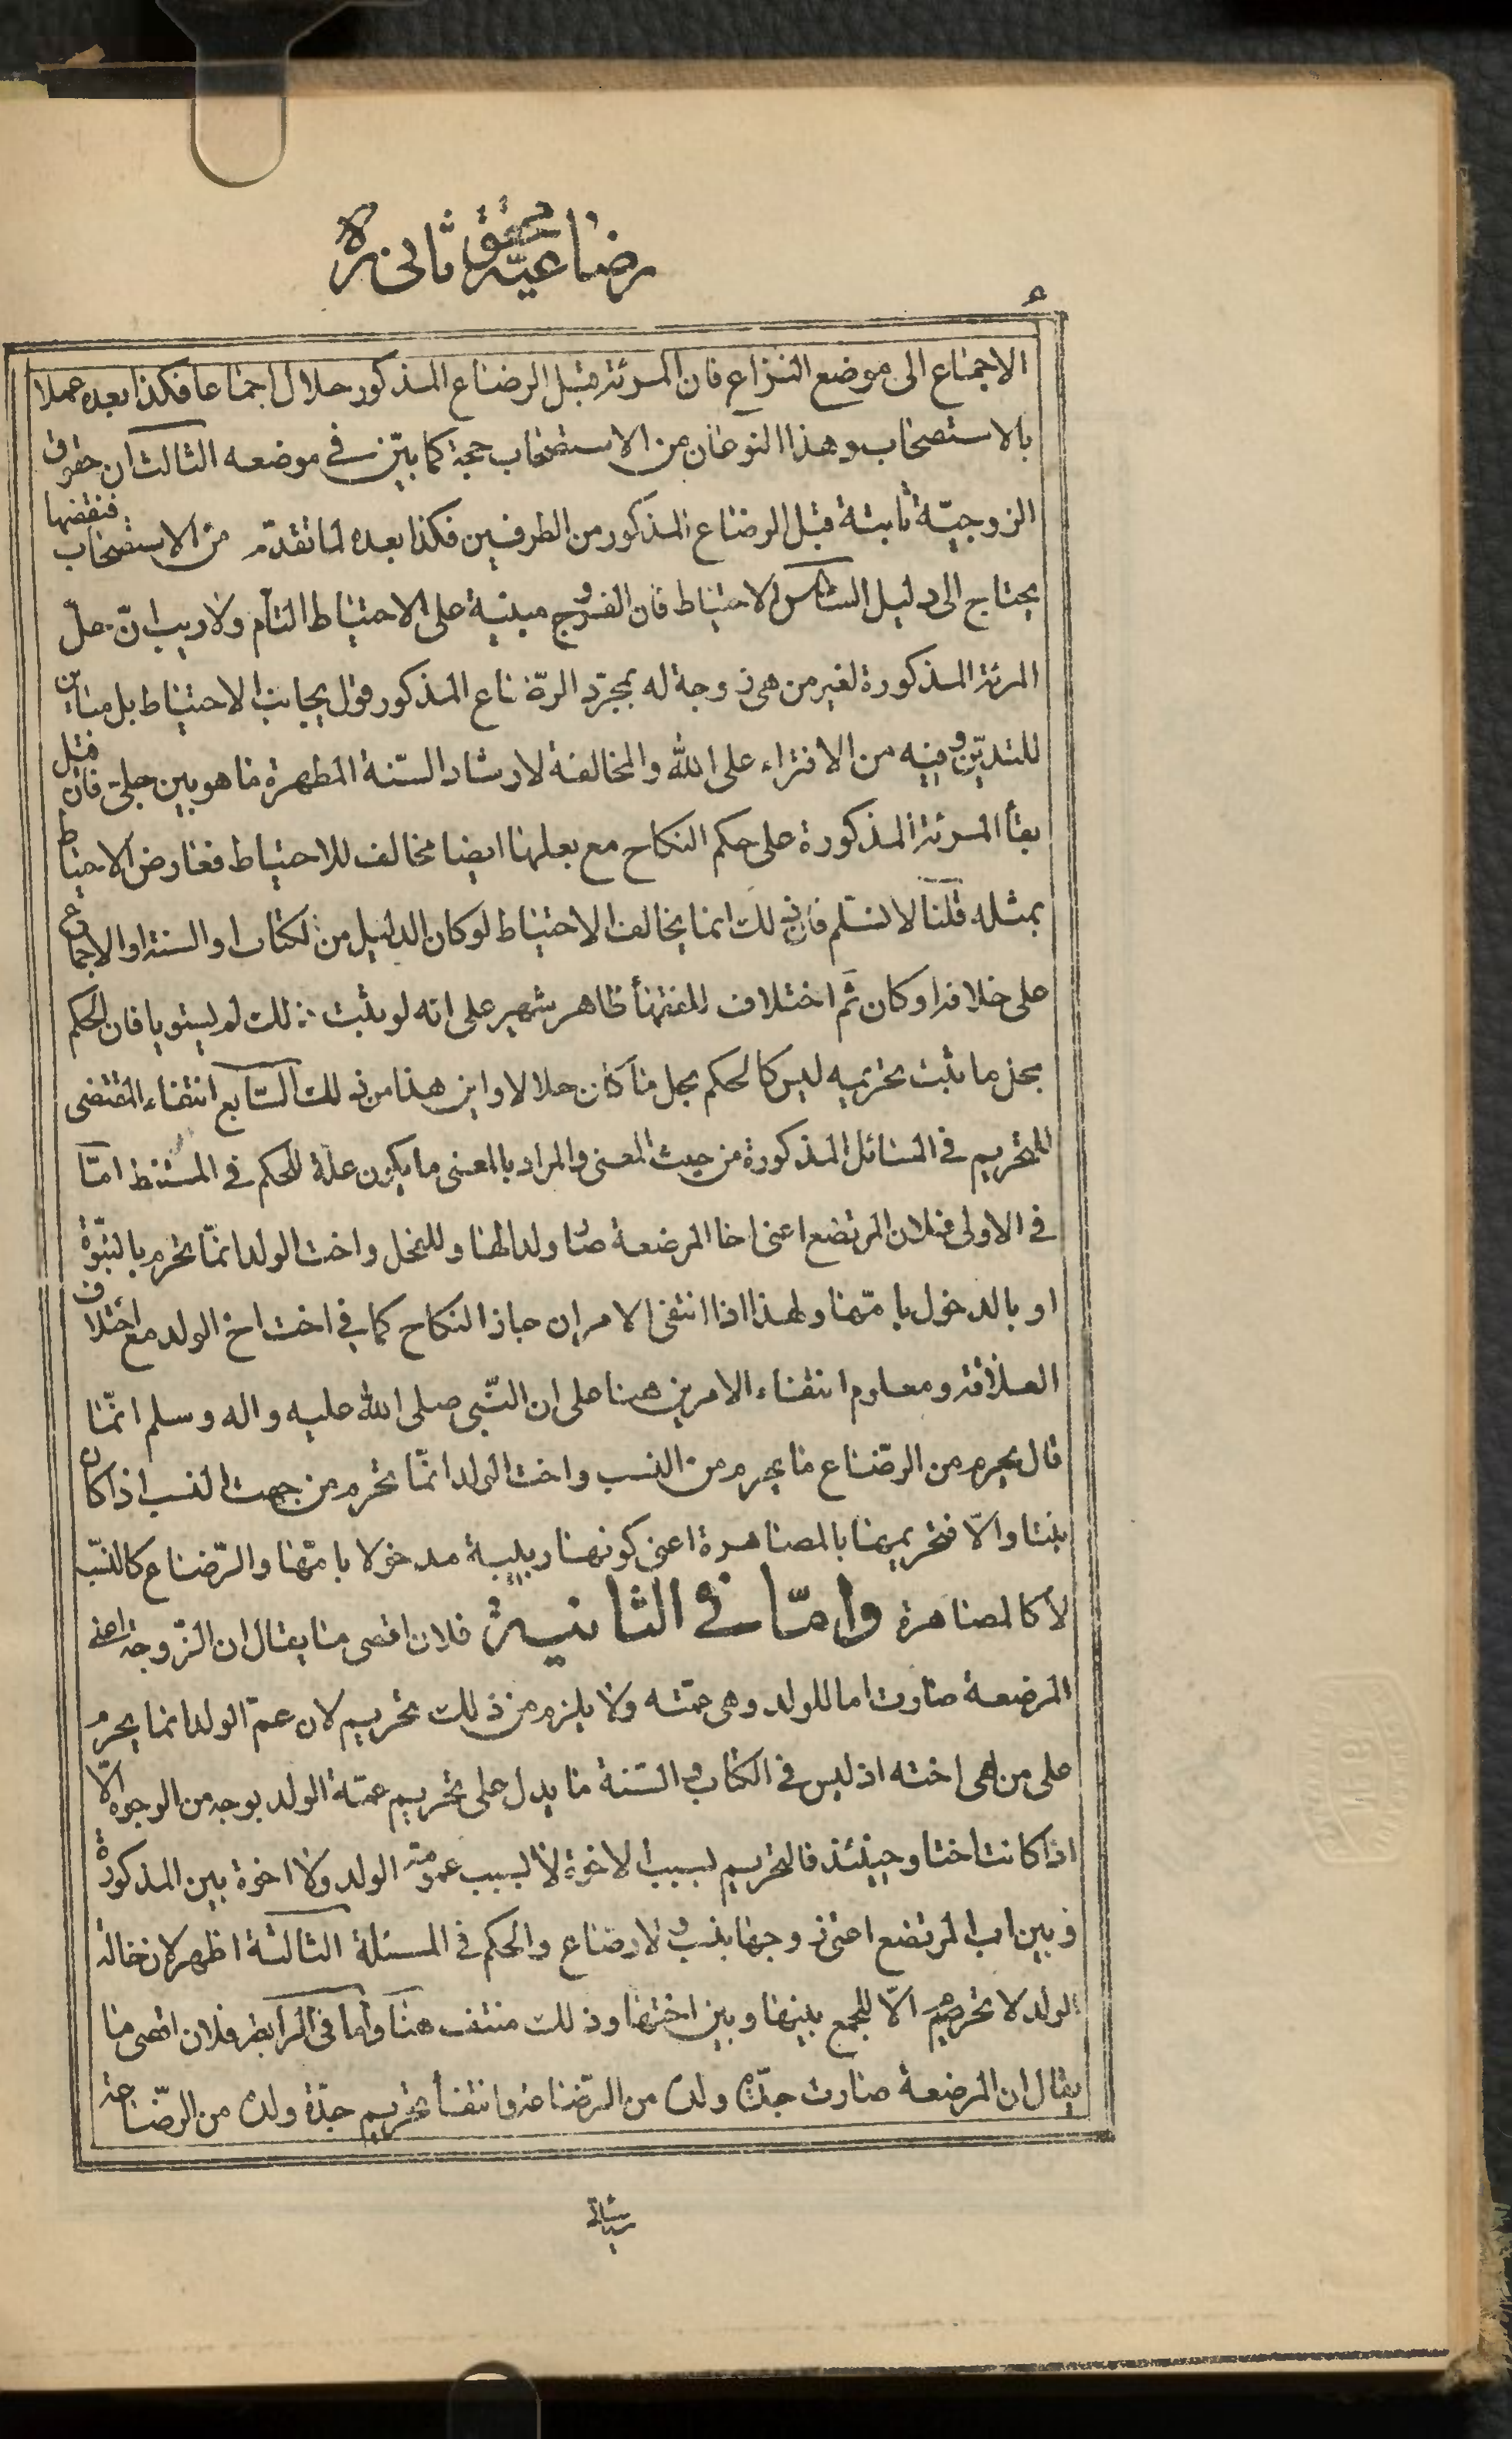 رضاعيّة محقق ثانى ره
الاجماع الى موضع النزاع فان المرئة قبل الرضاع المذكور حلال اجماعا فكذا بعده عملا
بالاستصحاب وهذا النوعان من الاستصحاب حجة كما بيّن في موضعه الثالث ان حقوق
الزوجيّة ثابتة قبل الرضاع المذكور من الطرفين فكذا بعده لما تقدّم من الاستصحاب فنقضها
يحتاج الى دليل السادس الاحتياط فان الفروج مبنية على الاحتياط التام ولا ريب انّ حلّ
المرئة المذكورة لغير من هى زوجة له بمجرّد الرّضاع المذكور قول يجانب الاحتياط بل مباين
للتديّن وفيه من الافتراء على الله والمخالفة لارشاد السّنة المطهرة ما هو بين جلىّ فان قيل
بقأ المرئة المذكورة على حكم النكاح مع بعلها ايضا مخالف للاحتياط فعارض الاحتياط
بمثله قلنا لا نسلم فان ذلك انما يخالف الاحتياط لو كان الدليل من الكتاب او السنة او الاجماع
على خلافه او كان ثَم اختلاف للفقهأ ظاهر شهير على انه لو ثبت ذلك لم يستويا فان الحكم
بحل ما ثبت تحريمه ليس كالحكم بحل ما كان حلالا واين هذا من ذلك السّابع انتفاء المقتضى
للتحريم في المسائل المذكورة من حيث المعنى والمراد بالمعنى ما يكون علّة للحكم في المستنبط امّا
في الاولى فلان المرتضع اعنى اخا المرضعة صار ولدا لها وللفحل واخت الولد انمّا تحرم بالبنوّة
او بالدخول بامّها ولهذا اذا انتفى الامران جاز النكاح كما في اخت اخ الولد مع اختلاف
العلاقة ومعلوم انتفاء الامرين هنا على ان النّبى صلى الله عليه واله وسلم انمّا
قال يحرم من الرّضاع ما يحرم من النسب واخت الولد انمّا تحرم من جهت النسب اذا كان
بنتا والاّ فتحريمها بالمصاهرة اعنى كونها ربيبة مدخولا بامّها والرّضاع كالنسب
لا كالمصاهرة وامّا فى الثانية فلان اقصى ما يقال ان الزّوجة اعنى
المرضعة صارت اما للولد وهى عمّته ولا يلزم من ذلك تحريم لان عمّ الولد انما يحرم
على من هى اخته اذ ليس في الكتاب والسّنة ما يدل على تحريم عمّة الولد بوجه من الوجوه الاّ
اذا كانت اختا وحينئذ فالتحريم بسبب الاخوة لا بسبب عمومة الولد ولا اخوة بين المذكورة
وبين اب المرتضع اعنى زوجها بنسب ولا رضاع والحكم في المسئلة الثالثة اظهر لان خالة
الولد لا تحرم الاّ للجمع بينها وبين اختها وذلك منتف هنا واما فى الرابعة فلان اقصى ما
يقال ان المرضعة صارت جدّة ولده من الرّضاعة وانتفأ تحريم جدّة ولده من الرّضاعة